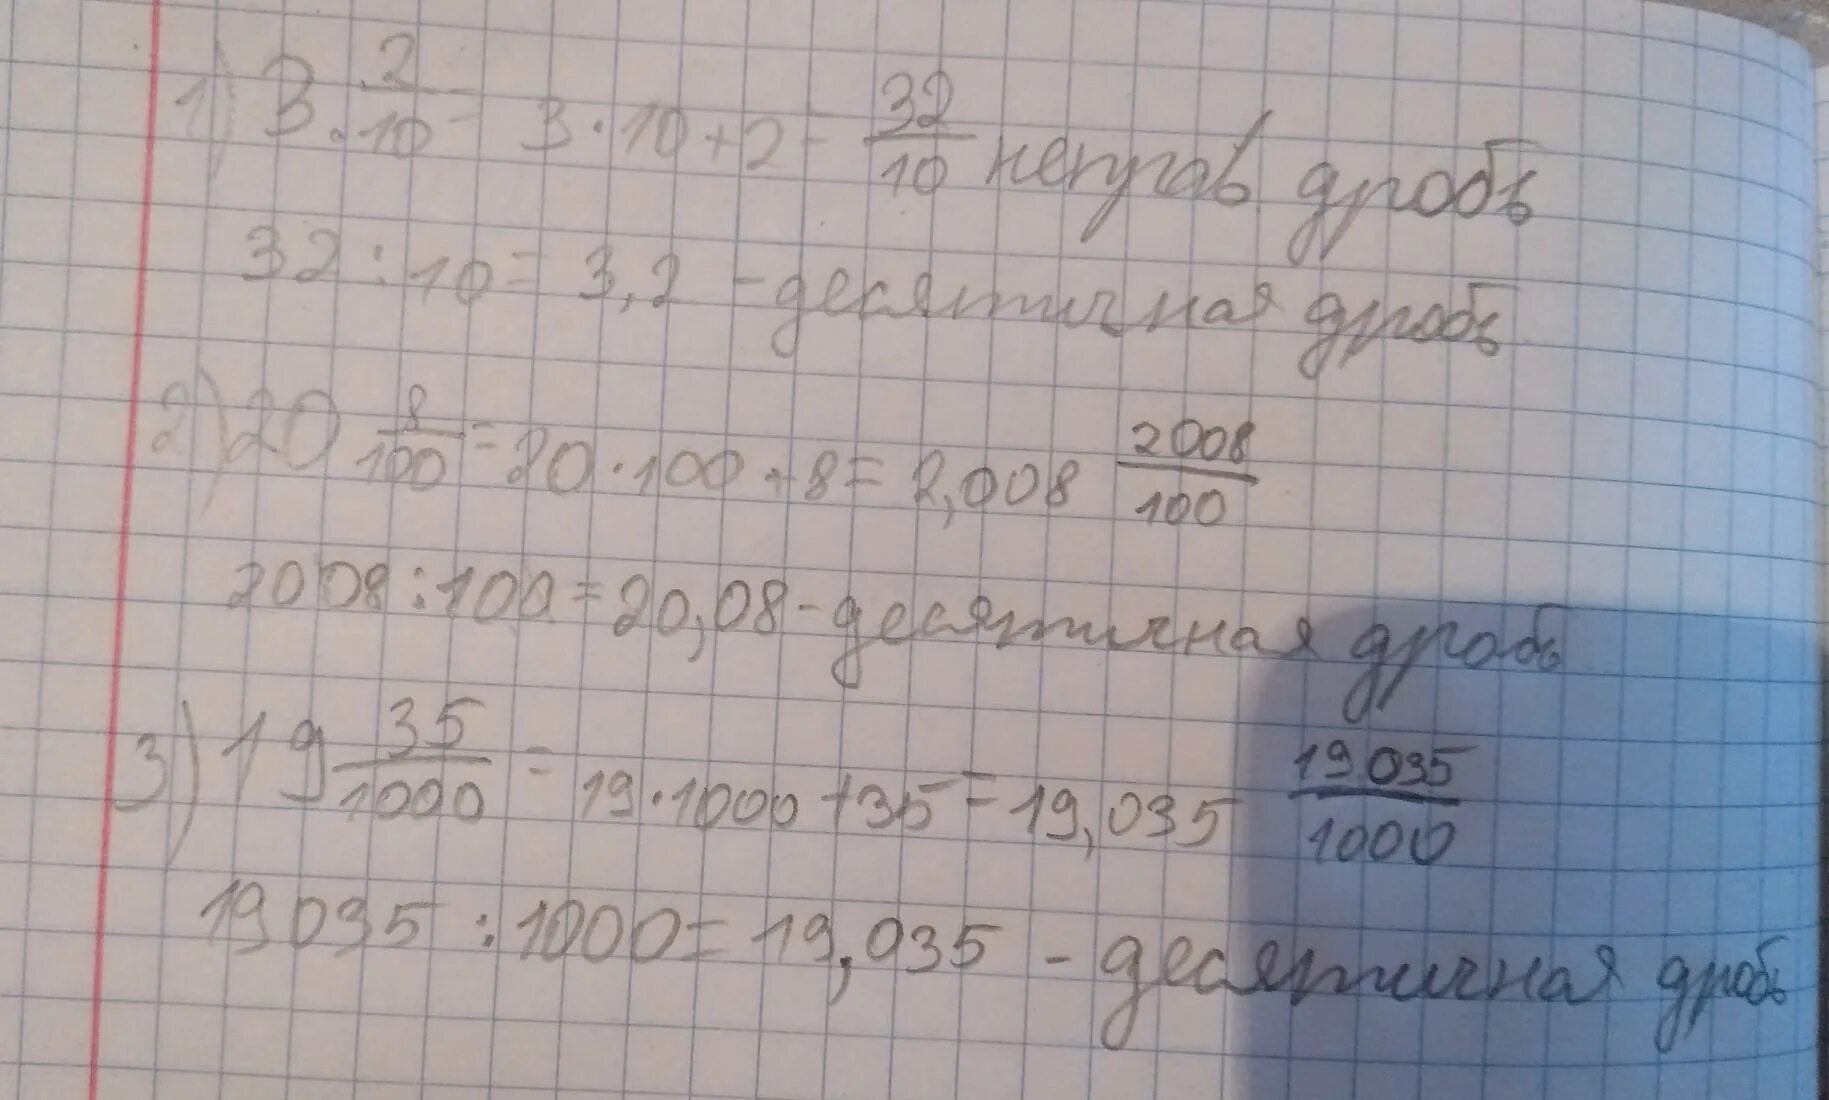 1) 3 2/10 = 3·10+2 = 32/10 неправ дробь
32:10 = 3,2 - десятичная дробь
2) 20 8/100 = 20·100+8 = 2,008 2008/100
2008:100 = 20,08 - десятичная дробь
3) 19 35/1000 = 19·1000+35 = 19,035 19035/1000
19035:1000 = 19,035 - десятичная дробь